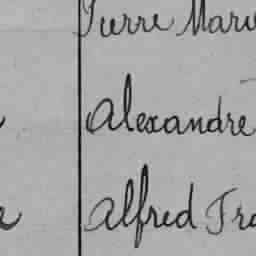 Pierre Marie
Alexandre
Alfred Fra